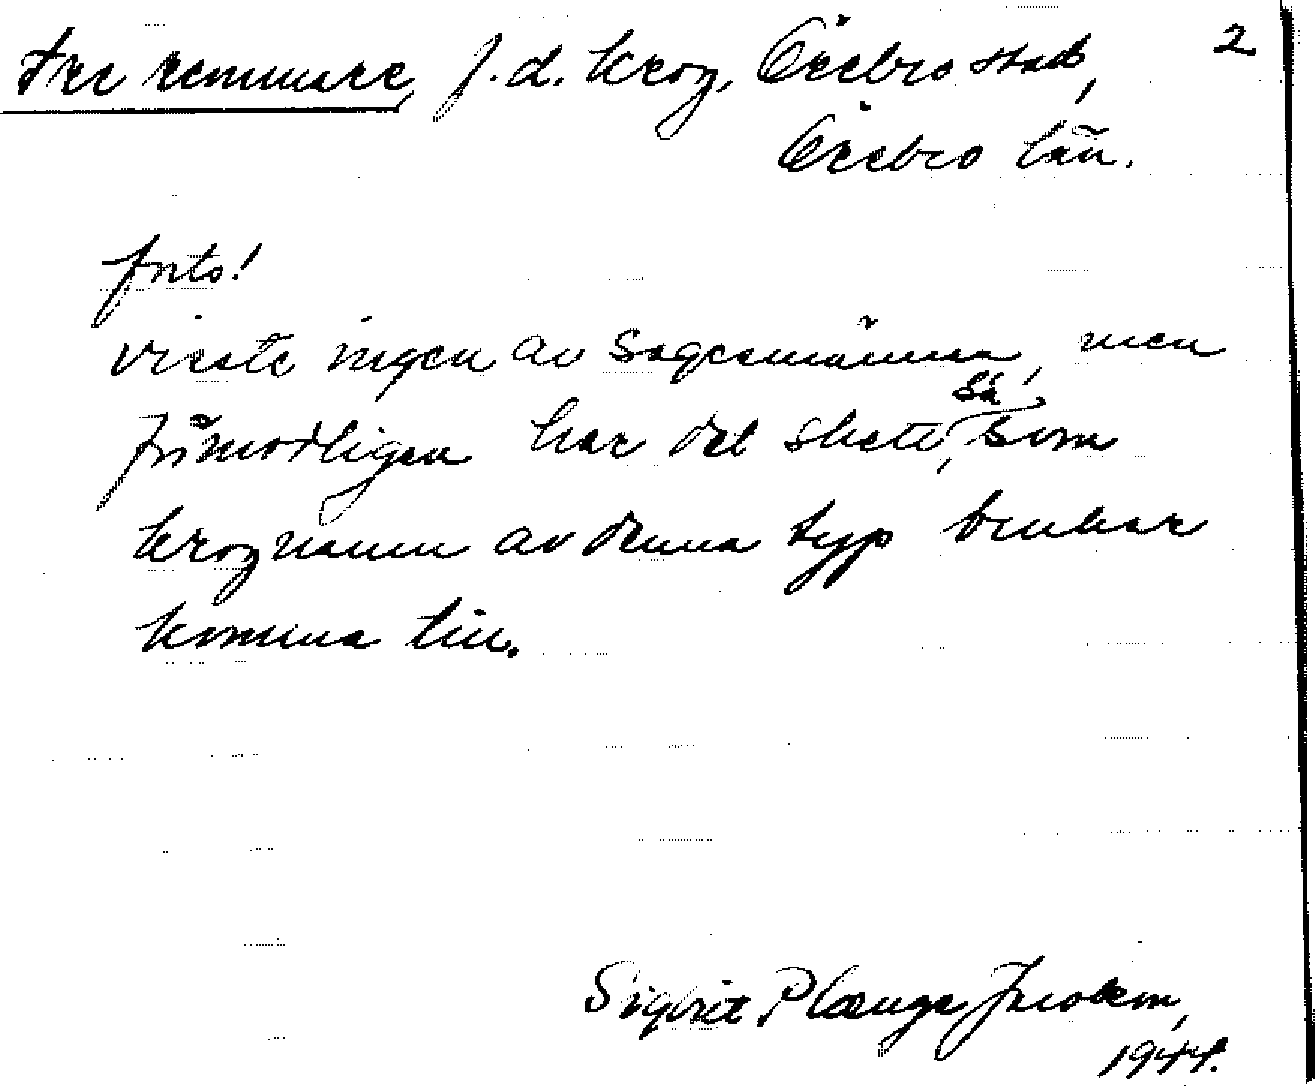 Tre remmare, f.d. krog, Örebro stad, 2
Örebro län.
forts!
visste ingen av sagesmännen, men
förmodligen har det skett, så som
krognamn av denna typ brukar
komma till.
Sigbrit Plænge Jacobson,
1944.